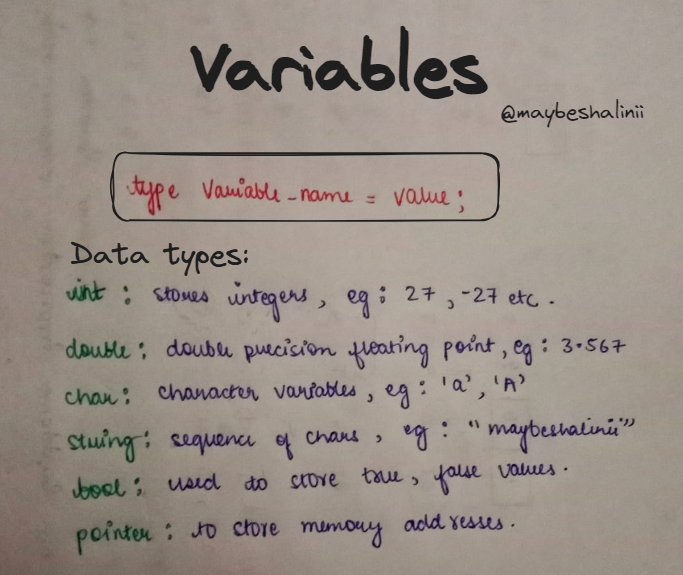 Variables
@maybeshalinii
type variable_name = value;
Data types:
int : stores integers, eg : 27, -27 etc.
double : double precision floating point, eg : 3.567
char : character variables, eg : 'a', 'A'
string : sequence of chars, eg : "maybeshalinii"
bool : used to store true, false values.
pointer : to store memory addresses.